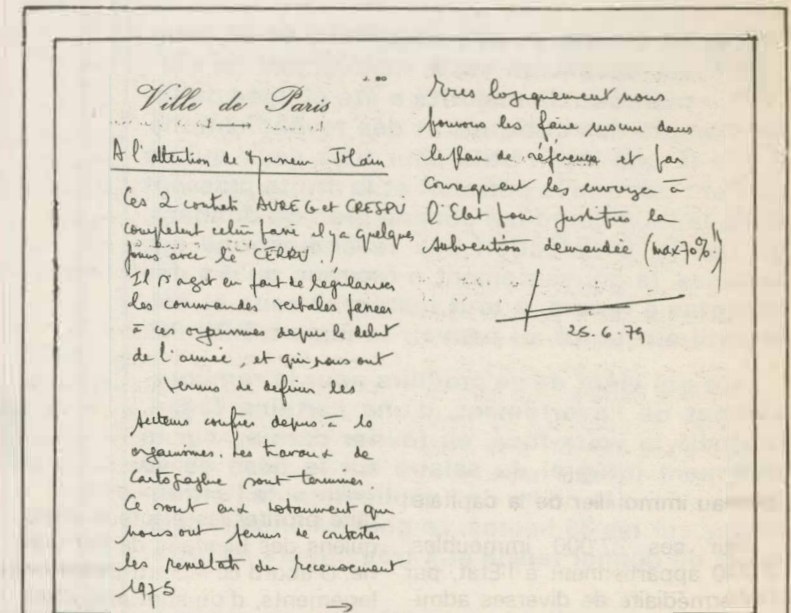 Ville de Paris
A l'attention de Monsieur Jolain
Ces 2 contrats AUREG et CRESPU
complètent celui passé il y a quelques
jours avec le CERAU.
Il s'agit en fait de régulariser
les commandes verbales passées
à ces organismes depuis le début
de l'année, et qui nous ont
permis de définir les
secteurs confiés depuis à 10
organismes. Les travaux de
cartographie sont terminés.
Ce sont eux notamment qui
nous ont permis de contester
les résultats du recensement
1975
→
Très logiquement nous
pouvons les faire inscrire dans
le plan de référence et par
conséquent les envoyer à
l'Etat pour justifier la
subvention demandée (max 70% !)
25.6.79
au immobilier de la capitale
ur ces 27.000 immeubles,
0 appartiennent à l'Etat, par
ermédiaire de diverses admi-